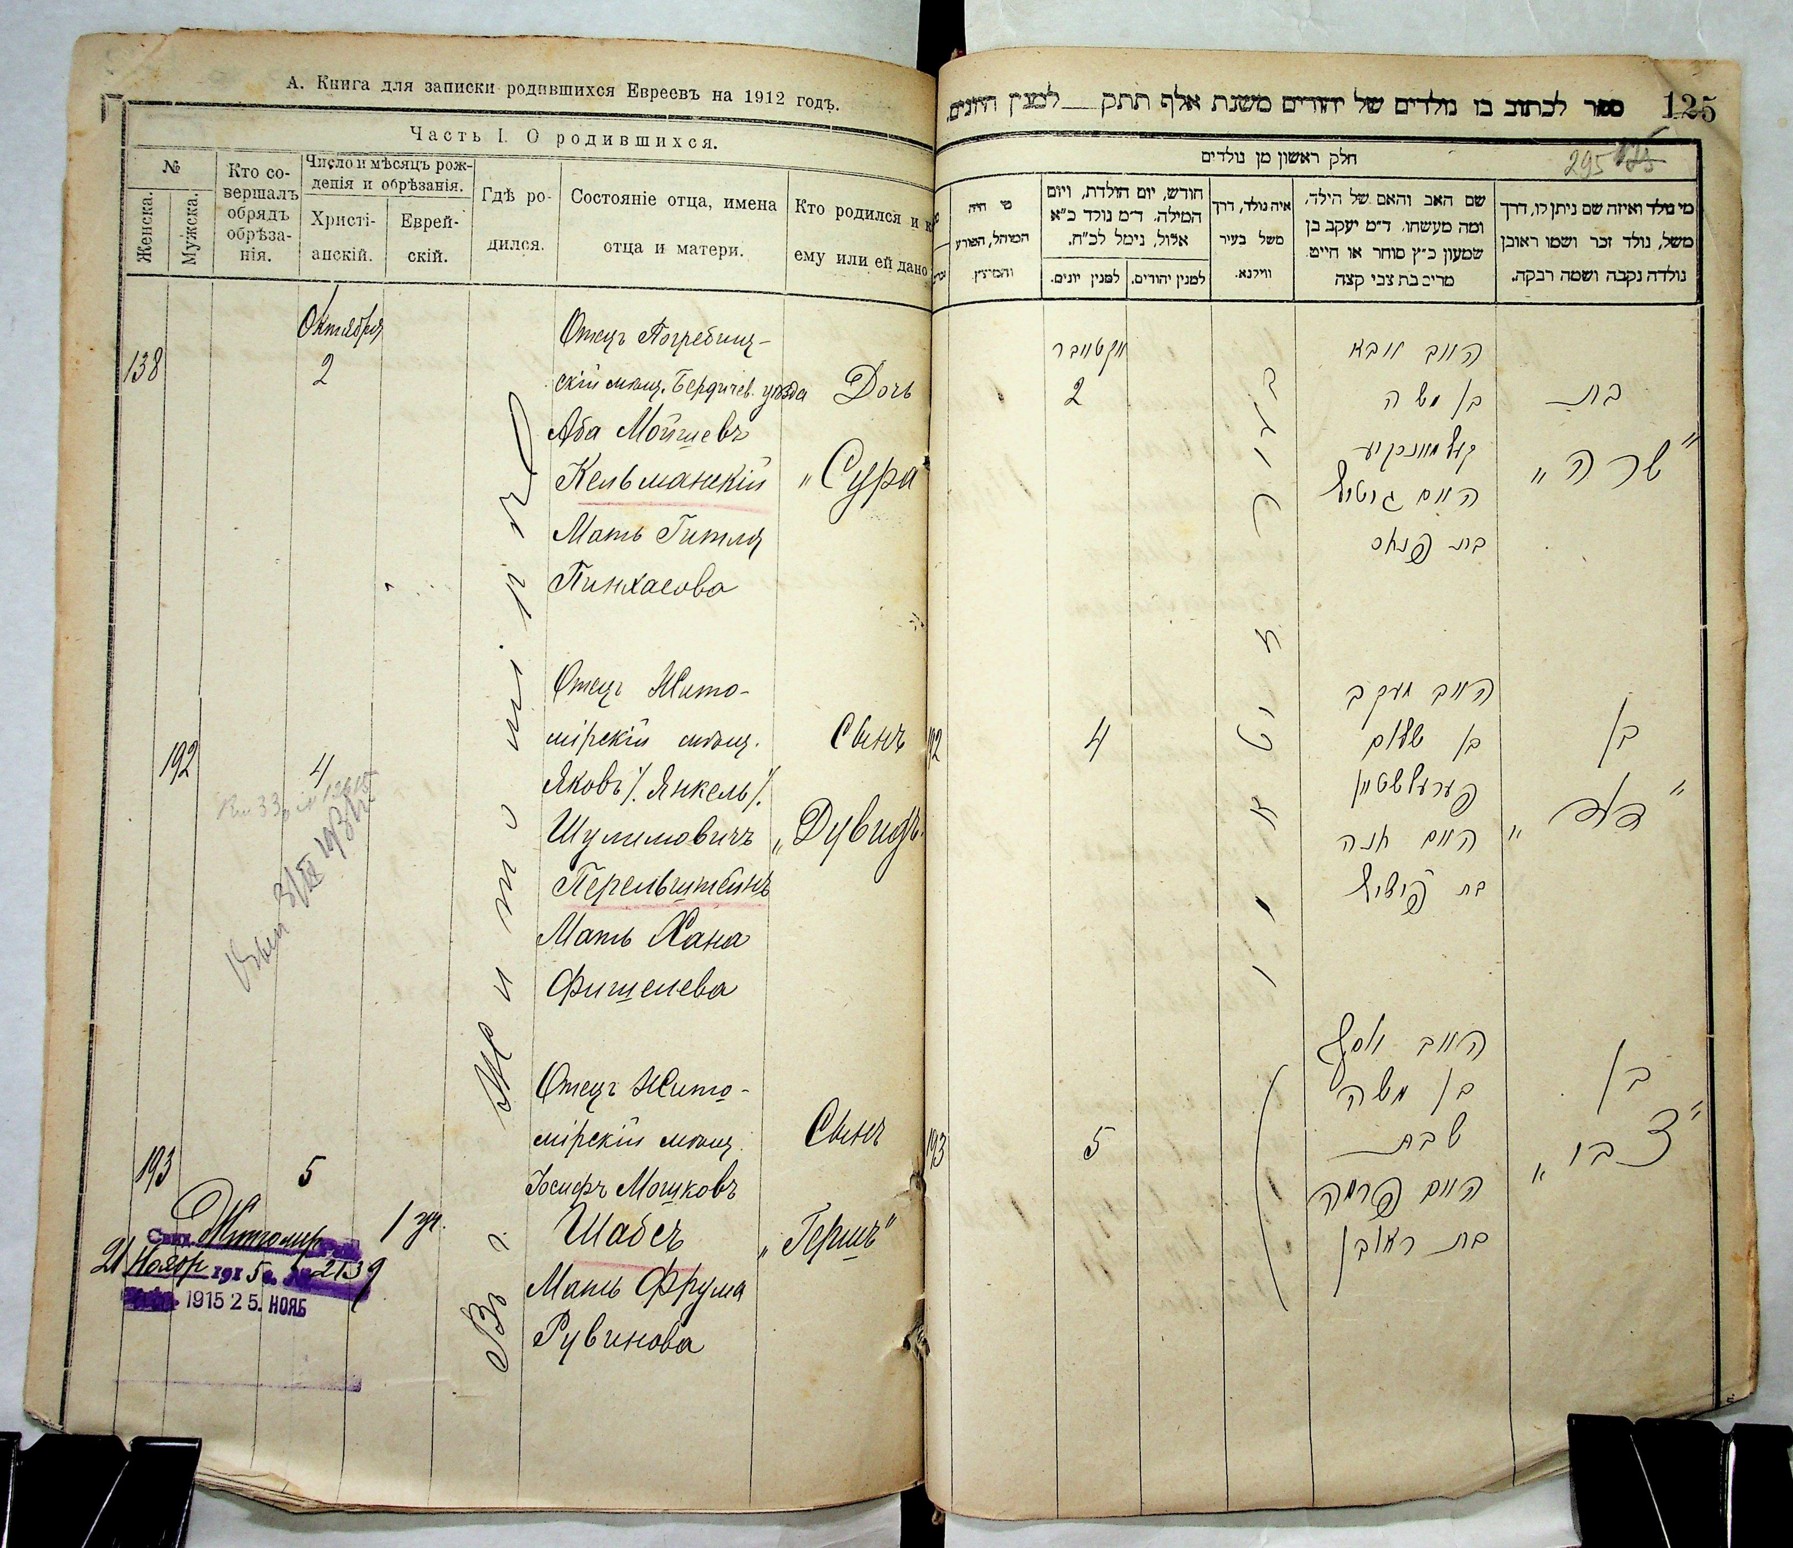 А. Книга для записки родившихся Евреевъ на 1912 годъ.
Часть I. О родившихся.
№
Женска.
Мужска.
Кто со-
вершалъ
обрядъ
обрѣза-
нія.
Число и мѣсяцъ рож-
денія и обрѣзанія.
Христі-
анскій.
Еврей-
скій.
Гдѣ ро-
дился.
Состояніе отца, имена
отца и матери.
Кто родился и к
ему или ей дано
138
Октября
2
Отецъ Погребищ-
скій мѣщ. Бердичев. уѣзда
Аба Мойшевъ
Кельманскій
Мать Гитля
Пинхасова
Дочь
„Сура
192
4
Отецъ Жито-
мірскій мѣщ.
Яковъ /. Янкель /.
Шулимовичъ
Перельштейнъ
Мать Хана
Фишелева
Сынъ
„Дувидъ
193
5
Отецъ Жито-
мірскій мѣщ.
Іосифъ Мошковъ
Шабсъ
Мать Фрума
Рувинова
Сынъ
„Гершъ"
Въ г. Житомірѣ
Житомир
21 Ноябр 1915 г. № 2139
1915 25. НОЯБ
125
ספר לכתוב בו נולדים של יהודים משנת אלף תתק למנין היונים.
295
חלק ראשון מן נולדים
מי נולד ואיזה שם ניתן לו, דרך
משל, נולד זכר ושמו ראובן
נולדה נקבה ושמה רבקה.
שם האב והאם של הילד,
ומה מעשהו. ד״מ יעקב בן
שמעון כ״ץ סוחר או חייט
מרים בת צבי קצה
איה נולד, דרך
משל בעיר
ווילנא.
חודש, יום הולדת, ויום
המילה. ד״מ נולד כ״א
אלול, נימל לכ״ח.
למנין יהודים.
למנין יונים.
מי היה
המוהל, הפורע
והמוצץ.
בת
"שרה"
האב אבא
בן משה
קעלמאנסקיע
האם גיטל
בת פנחס
אקטאבר
2
בן
"דוד"
האב יעקב
בן שלום
פערעלשטיין
האם חנה
בת פישל
4
192
בן
"צבי"
האב יוסף
בן משה
שבת
האם פרומה
בת ראובן
5
193